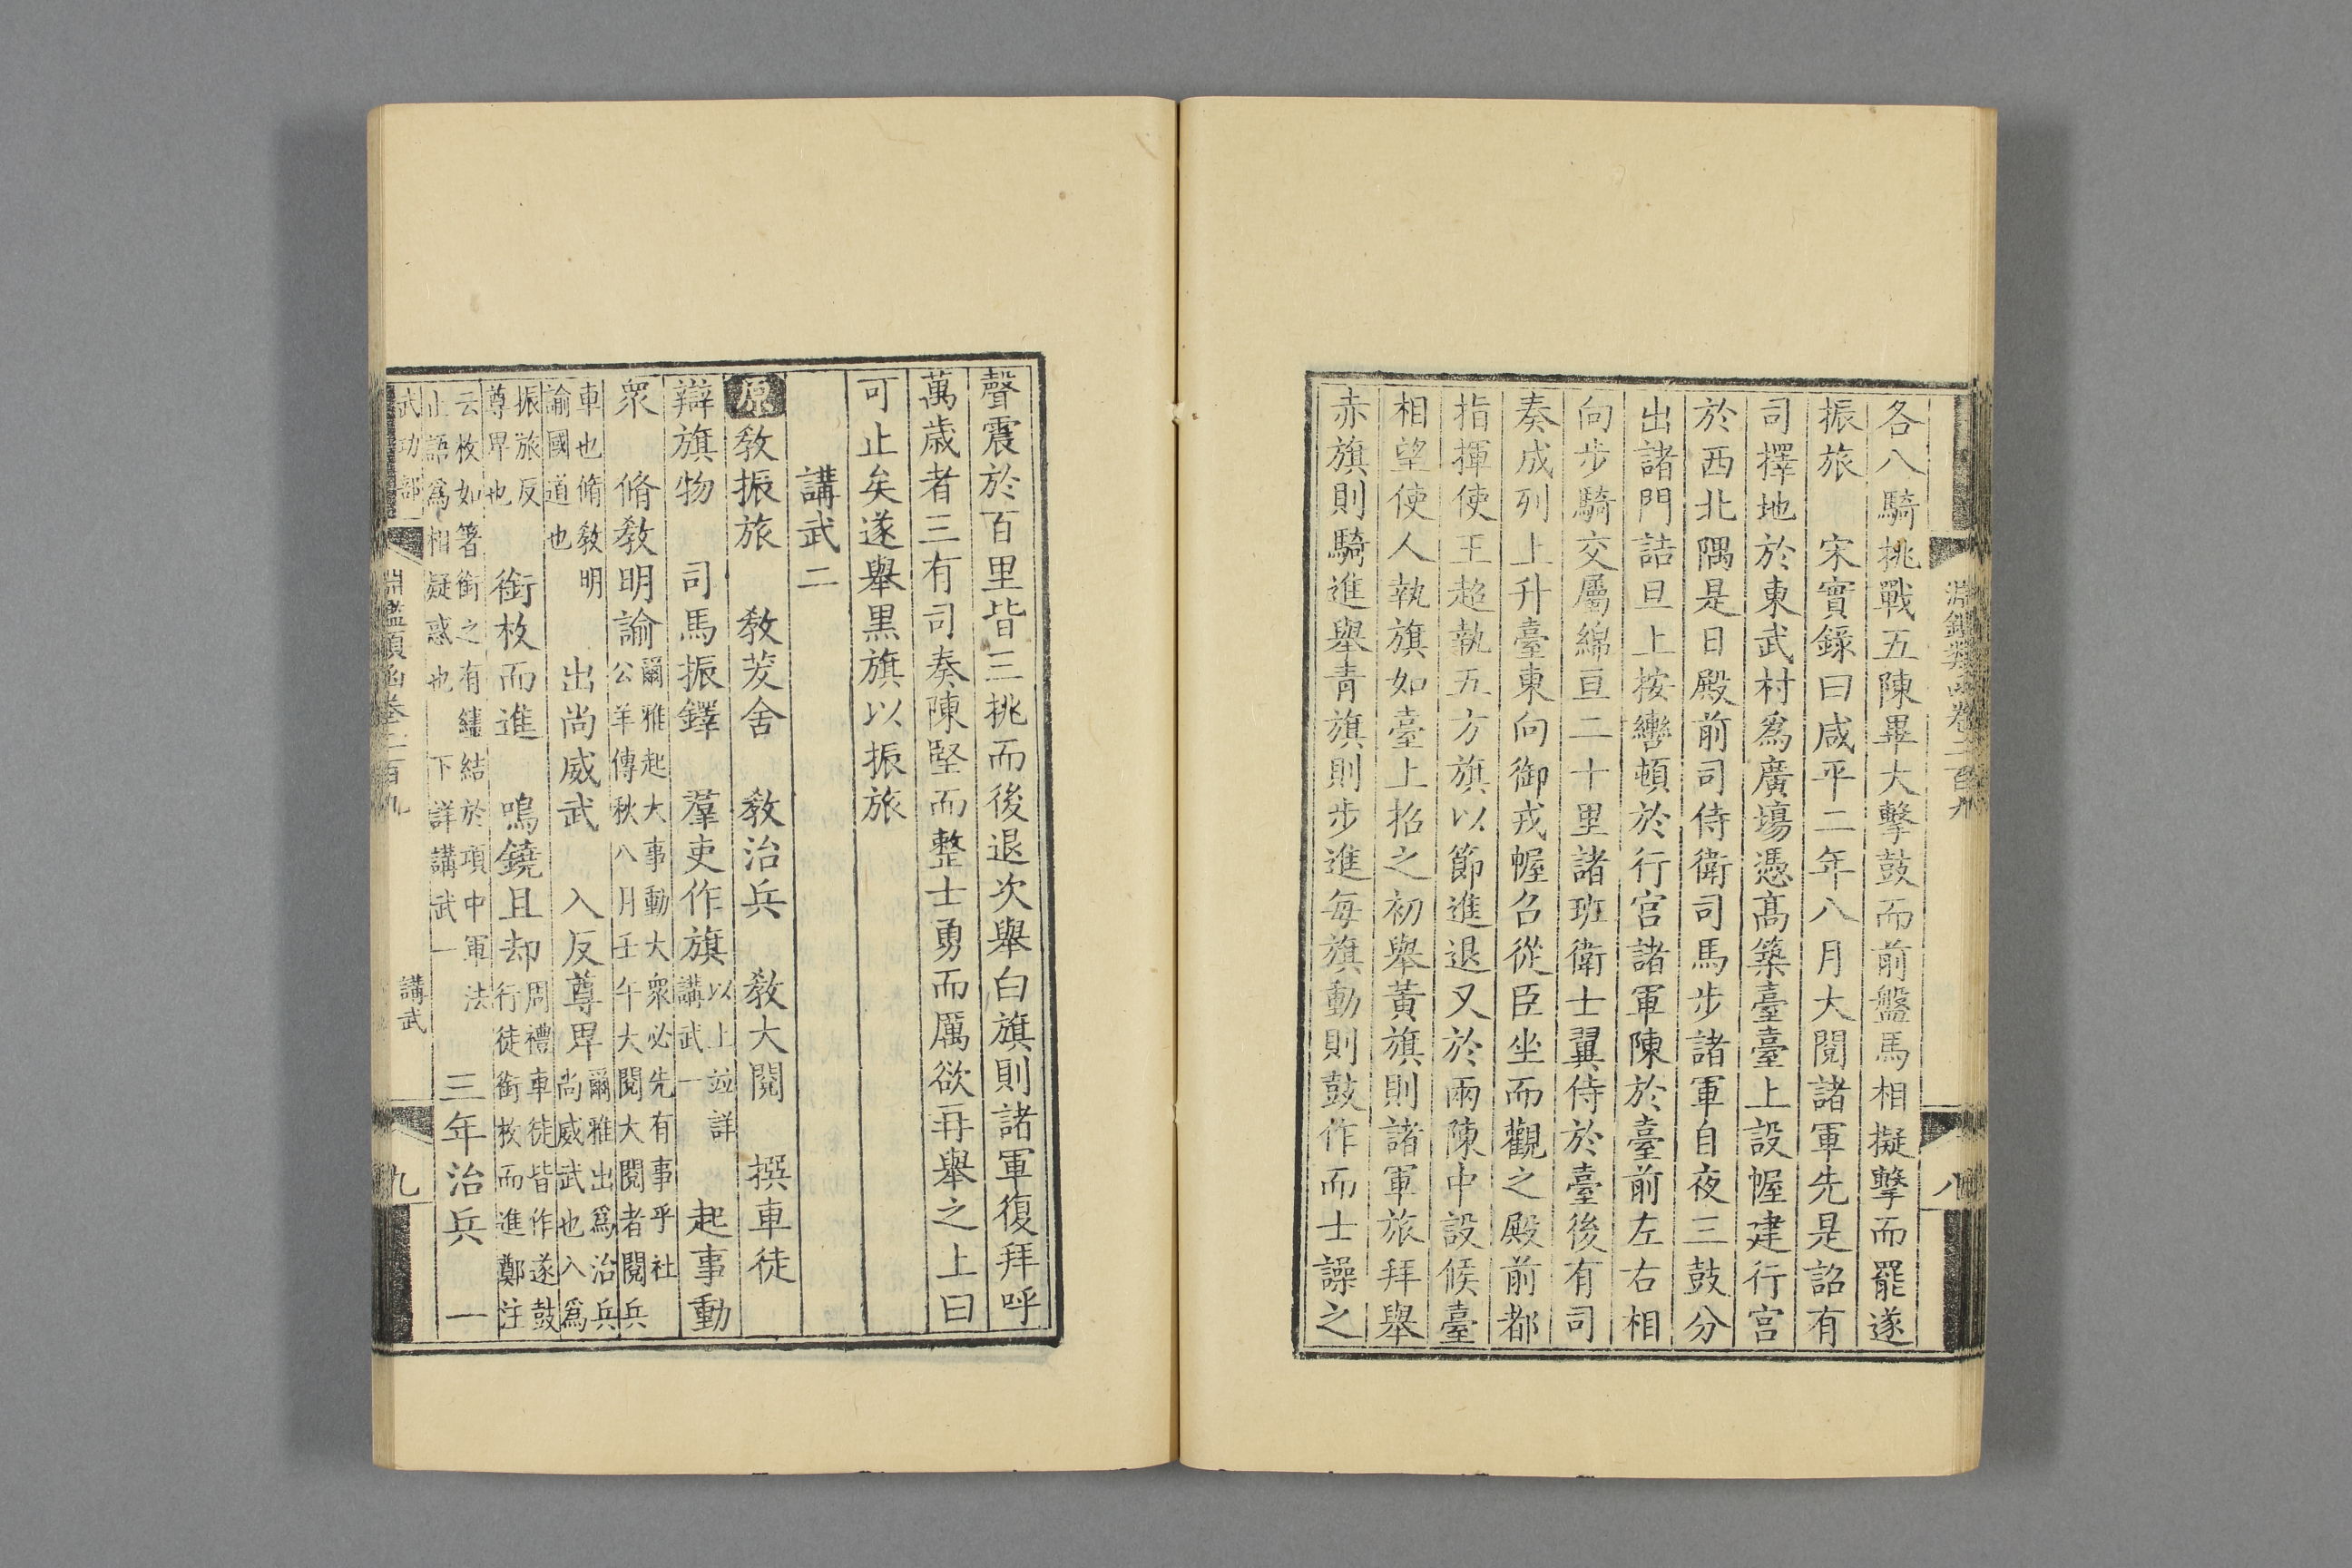 淵鑑類函卷二百九
八
各八騎挑戰五陳畢大擊鼓而前盤馬相擬擊而罷遂
振旅 宋實錄曰咸平二年八月大閱諸軍先是詔有
司擇地於東武村爲廣場憑高築臺臺上設幄建行宮
於西北隅是日殿前司侍衛司馬步諸軍自夜三鼓分
出諸門詰旦上按轡頓於行宮諸軍陳於臺前左右相
向步騎交屬綿亘二十里諸班衛士翼侍於臺後有司
奏成列上升臺東向御戎幄召從臣坐而觀之殿前都
指揮使王超執五方旗以節進退又於兩陳中設候臺
相望使人執旗如臺上招之初舉黃旗則諸軍旅拜舉
赤旗則騎進舉青旗則步進每旗動則鼓作而士譟之
聲震於百里皆三挑而後退次舉白旗則諸軍復拜呼
萬歲者三有司奏陳堅而整士勇而厲欲再舉之上曰
可止矣遂舉黑旗以振旅
講武二
原 教振旅 教茇舍 教治兵 教大閱 撰車徒
辯旗物 司馬振鐸 羣吏作旗 以上並詳講武一 起事動
衆 脩教明諭 爾雅起大事動大衆必先有事乎社公羊傳秋八月壬午大閱大閱者閱兵
車也脩教明諭國道也 出尚威武 入反尊卑 爾雅出爲治兵尚威武也入爲
振旅反尊卑也 銜枚而進 鳴鐃且却 周禮車徒皆作遂鼓行徒銜枚而進鄭注
云枚如箸銜之有繣結於項中軍法止語爲相疑惑也 下詳講武一 三年治兵 一
武功部
淵鑑類函卷二百九
講武
九